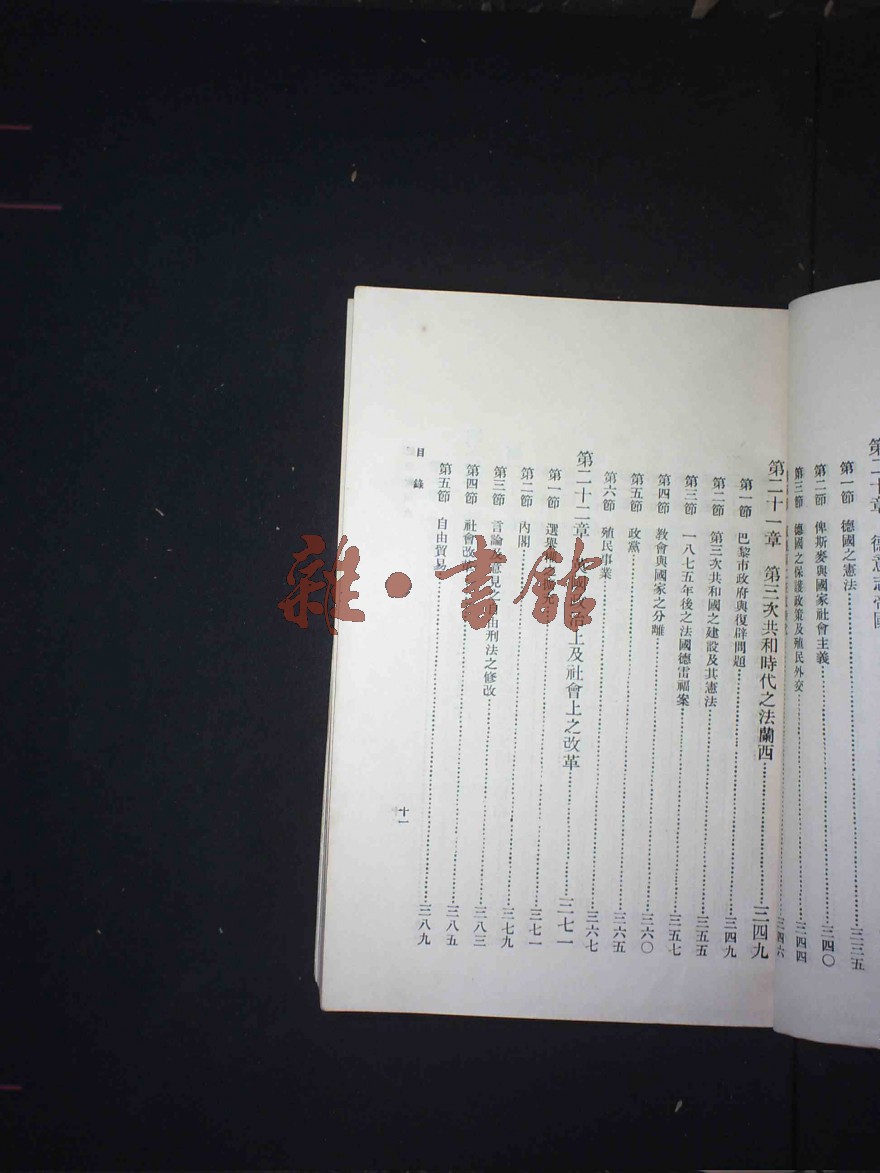 第二十章 德意志帝國
第一節 德國之憲法 三三五
第二節 俾斯麥與國家社會主義 三四〇
第三節 德國之保護政策及殖民外交 三四四
三四六
第二十一章 第三次共和時代之法蘭西 三四九
第一節 巴黎市政府與復辟問題 三四九
第二節 第三次共和國之建設及其憲法 三五五
第三節 一八七五年後之法國德雷福案 三五七
第四節 教會與國家之分離 三六〇
第五節 政黨 三六五
第六節 殖民事業 三六七
第二十二章 英國政治上及社會上之改革 三七一
第一節 選舉 三七一
第二節 內閣 三七九
第三節 言論及意見之自由刑法之修改 三八三
第四節 社會改 三八五
第五節 自由貿易 三八九
目錄
十一
雜·書館